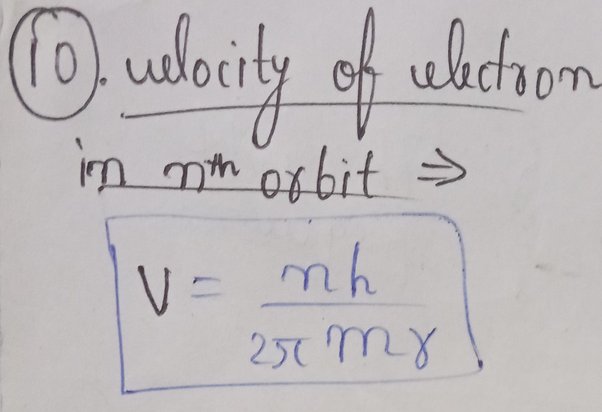 10). velocity of electron
in nth orbit ⇒
V = nh
2π mr